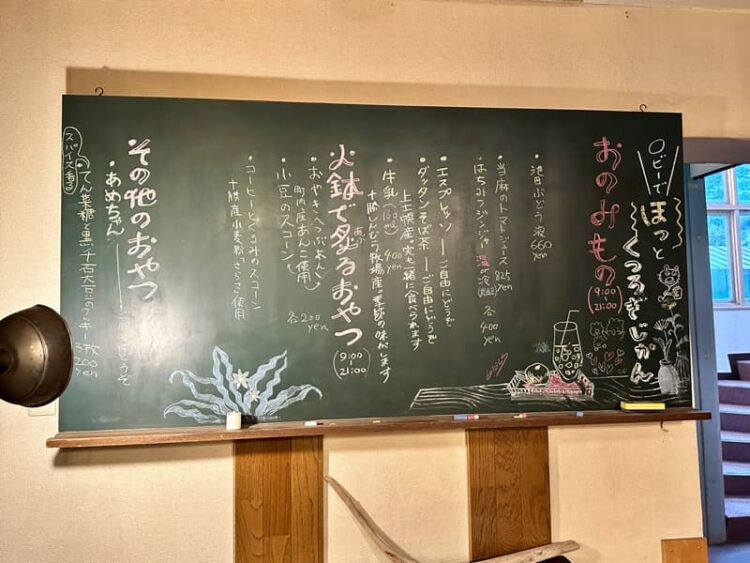 ロビーで
ほっと
くつろぎじかん
おのみもの
(9:00〜21:00)
・池田ぶどう液 660yen
・当麻のトマトジュース 825yen
・はちみつジンジャー 温or冷 各400yen
・エスプレッソ ── ご自由にどうぞ
・ダッタンそば茶 ── ご自由にどうぞ
上士幌産。実も一緒に食べられます
・牛乳 400yen
十勝しんむら牧場産。季節の味がします
火鉢で炙るおやつ
(9:00〜21:00)
・おやき(つぶあん)
町内産あんこ使用
・小豆のスコーン
各200yen
・コーヒーとくるみのスコーン
十勝産小麦粉きらら使用
その他のおやつ
・あめちゃん
スパイス香る
・てん菜糖と黒千石大豆のクッキー
3枚200yen